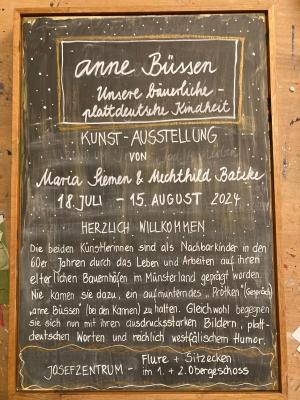 anne Büssen
Unsere bäuerliche-
plattdeutsche Kindheit
KUNST-AUSSTELLUNG
VON
Maria Siemen & Mechthild Batzke
18. JULI - 15. AUGUST 2024
HERZLICH WILLKOMMEN
Die beiden Künstlerinnen sind als Nachbarkinder in den
60er Jahren durch das Leben und Arbeiten auf ihren
elterlichen Bauernhöfen im Münsterland geprägt worden.
Nie kamen sie dazu, ein aufmunterndes „Prötken" (Gespräch)
„anne Büssen" (bei den Kannen) zu halten. Gleichwohl begegnen
sie sich nun mit ihren ausdrucksstarken Bildern, platt-
deutschen Worten und reichlich westfälischem Humor.
JOSEFZENTRUM - Flure + Sitzecken
im 1. + 2. Obergeschoss